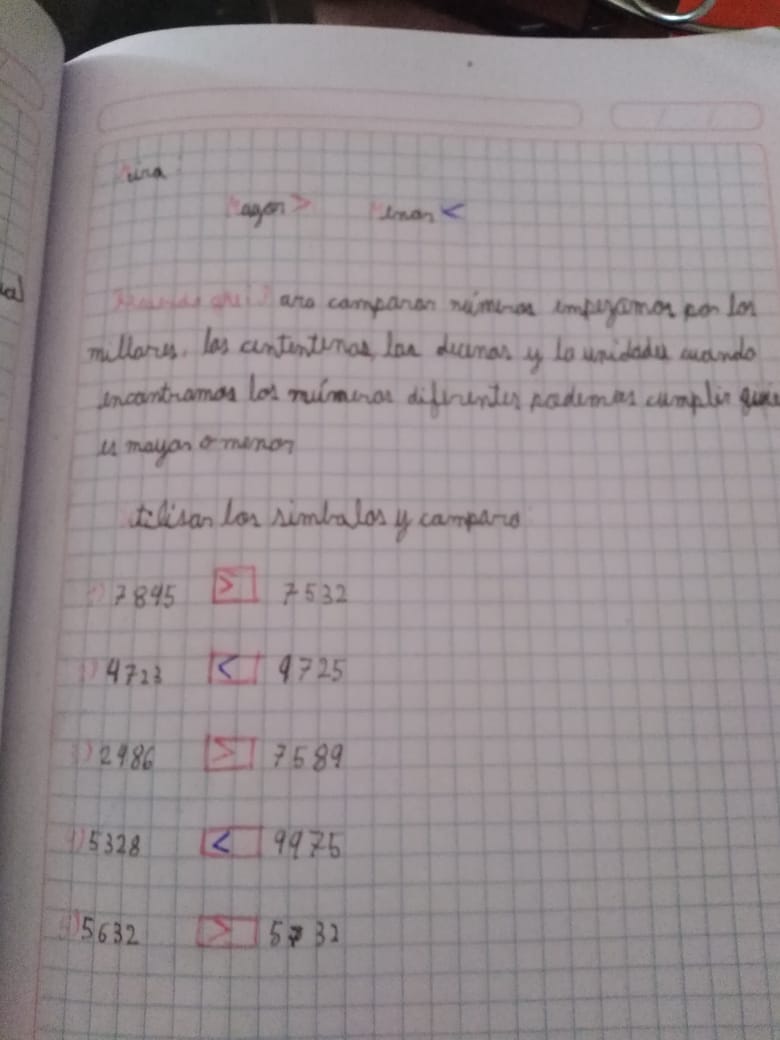 Mira
Mayor > Menor <
Recuerda que: Para comparar números empezamos por los
millares, las cententenas, las decenas y la unidades cuando
encontramos los números diferentes podemos cumplir
es mayor o menor
utilisar los simbalos y comparo
7845 > 7532
4723 < 9725
2986 > 7589
5328 < 9975
5632 > 5732